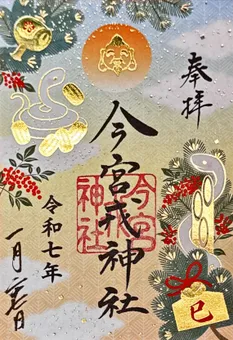 奉拝
今宮戎神社
今宮
神社
令和七年
一月
巳